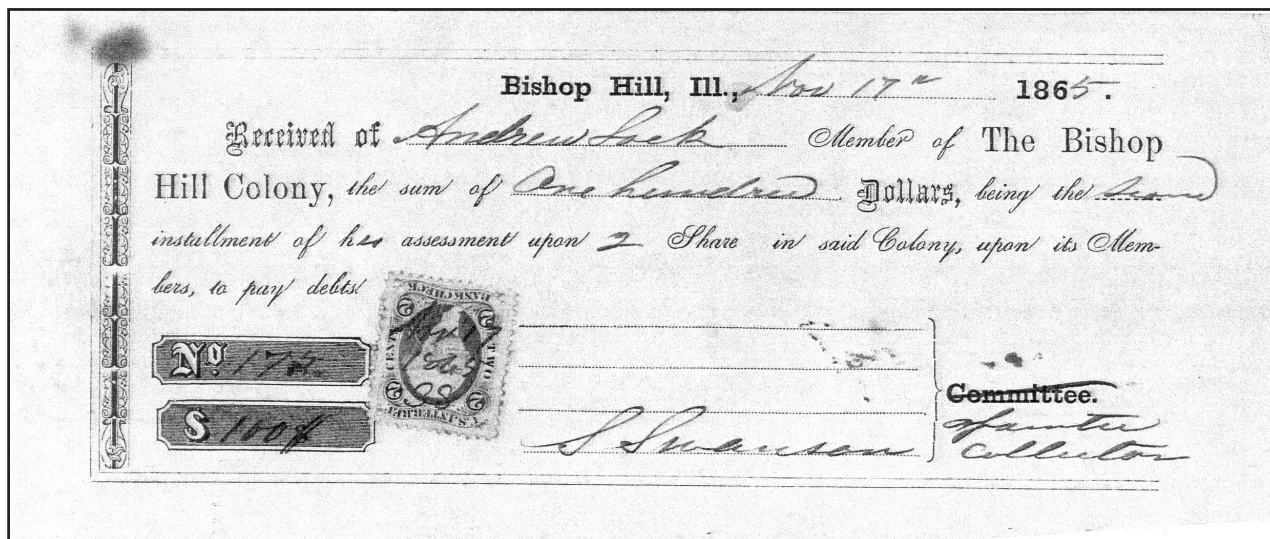 Bishop Hill, Ill., Nov 17th 1865.
Received of Andrew Lock Member of The Bishop
Hill Colony, the sum of One hundred Dollars, being the second
installment of his assessment upon 2 Share in said Colony, upon its Mem-
bers, to pay debts.
BANK CHECK
CENTS
TWO
2
2
2
2
U.S. INTER. REV.
Nov 17
1865
SS
No. 172
$ 100
S Swanson
Committee.
Collector